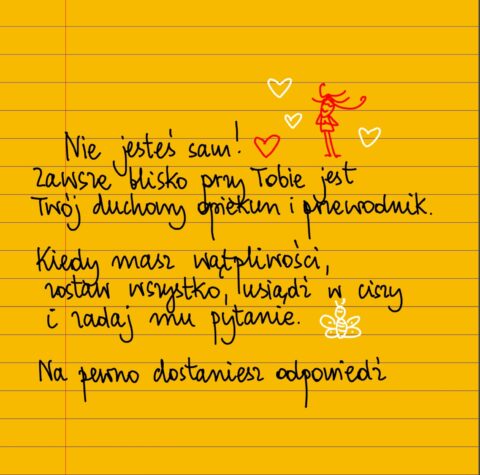 Nie jesteś sam!
Zawsze blisko przy Tobie jest
Twój duchowy opiekun i przewodnik.
Kiedy masz wątpliwości,
zostaw wszystko, usiądź w ciszy
i zadaj mu pytanie.
Na pewno dostaniesz odpowiedź